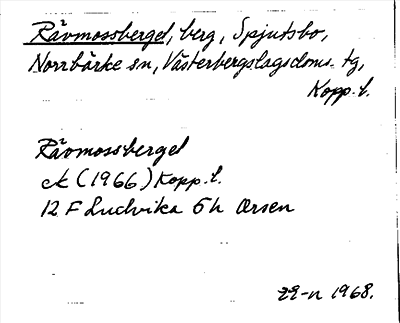 Rävmossberget, berg, Spjutsbo,
Norrbärke sn, Västerbergslagsdoms. tg,
Kopp. l.
Rävmossberget
ek (1966) Kopp. l.
12 F Ludvika 5h Ørsen
1968.